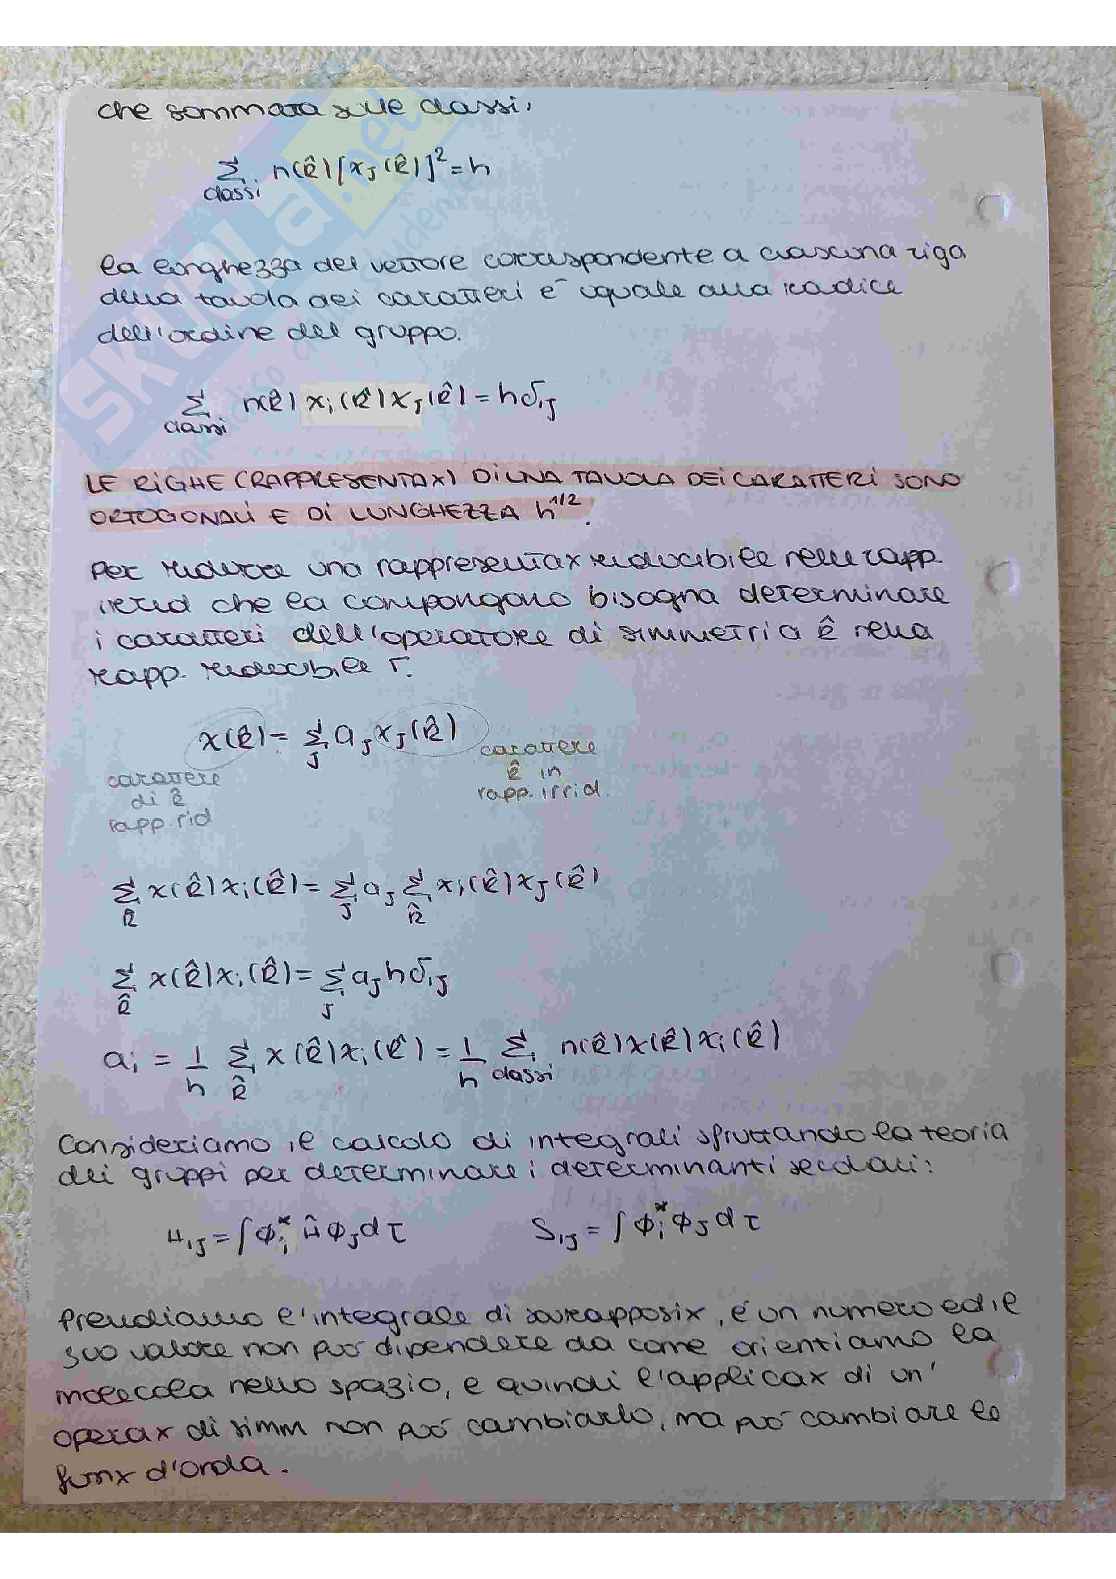 che sommata sulle classi:
Σ classi n(R̂)[χj(R̂)]² = h
la lunghezza del vettore corrispondente a ciascuna riga
della tavola dei caratteri è uguale alla radice
dell'ordine del gruppo.
Σ classi n(R̂) χi(R̂)χj(R̂) = hδij
LE RIGHE (RAPPRESENTAX) DI UNA TAVOLA DEI CARATTERI SONO
ORTOGONALI E DI LUNGHEZZA h^1/2.
Per ridurre una rappresentax riducibile nelle rapp.
irrid che la compongono bisogna determinare
i caratteri dell'operatore di simmetria R̂ nella
rapp. riducibile Γ.
χ(R̂) = Σj aj χj(R̂)
carattere
di R̂
rapp. rid
carattere
R̂ in
rapp. irrid.
ΣR̂ χ(R̂)χi(R̂) = Σj aj ΣR̂ χi(R̂)χj(R̂)
ΣR̂ χ(R̂)χi(R̂) = Σj aj hδij
ai = 1/h ΣR̂ χ(R̂)χi(R̂) = 1/h Σ classi n(R̂)χ(R̂)χi(R̂)
Consideriamo il calcolo di integrali sfruttando la teoria
dei gruppi per determinare i determinanti secolari:
Hij = ∫ϕi* Ĥ ϕj dτ
Sij = ∫ϕi* ϕj dτ
Prendiamo l'integrale di sovrapposix, è un numero ed il
suo valore non può dipendere da come orientiamo la
molecola nello spazio, e quindi l'applicax di un'
operax di simm non può cambiarlo, ma può cambiare le
funx d'onda.